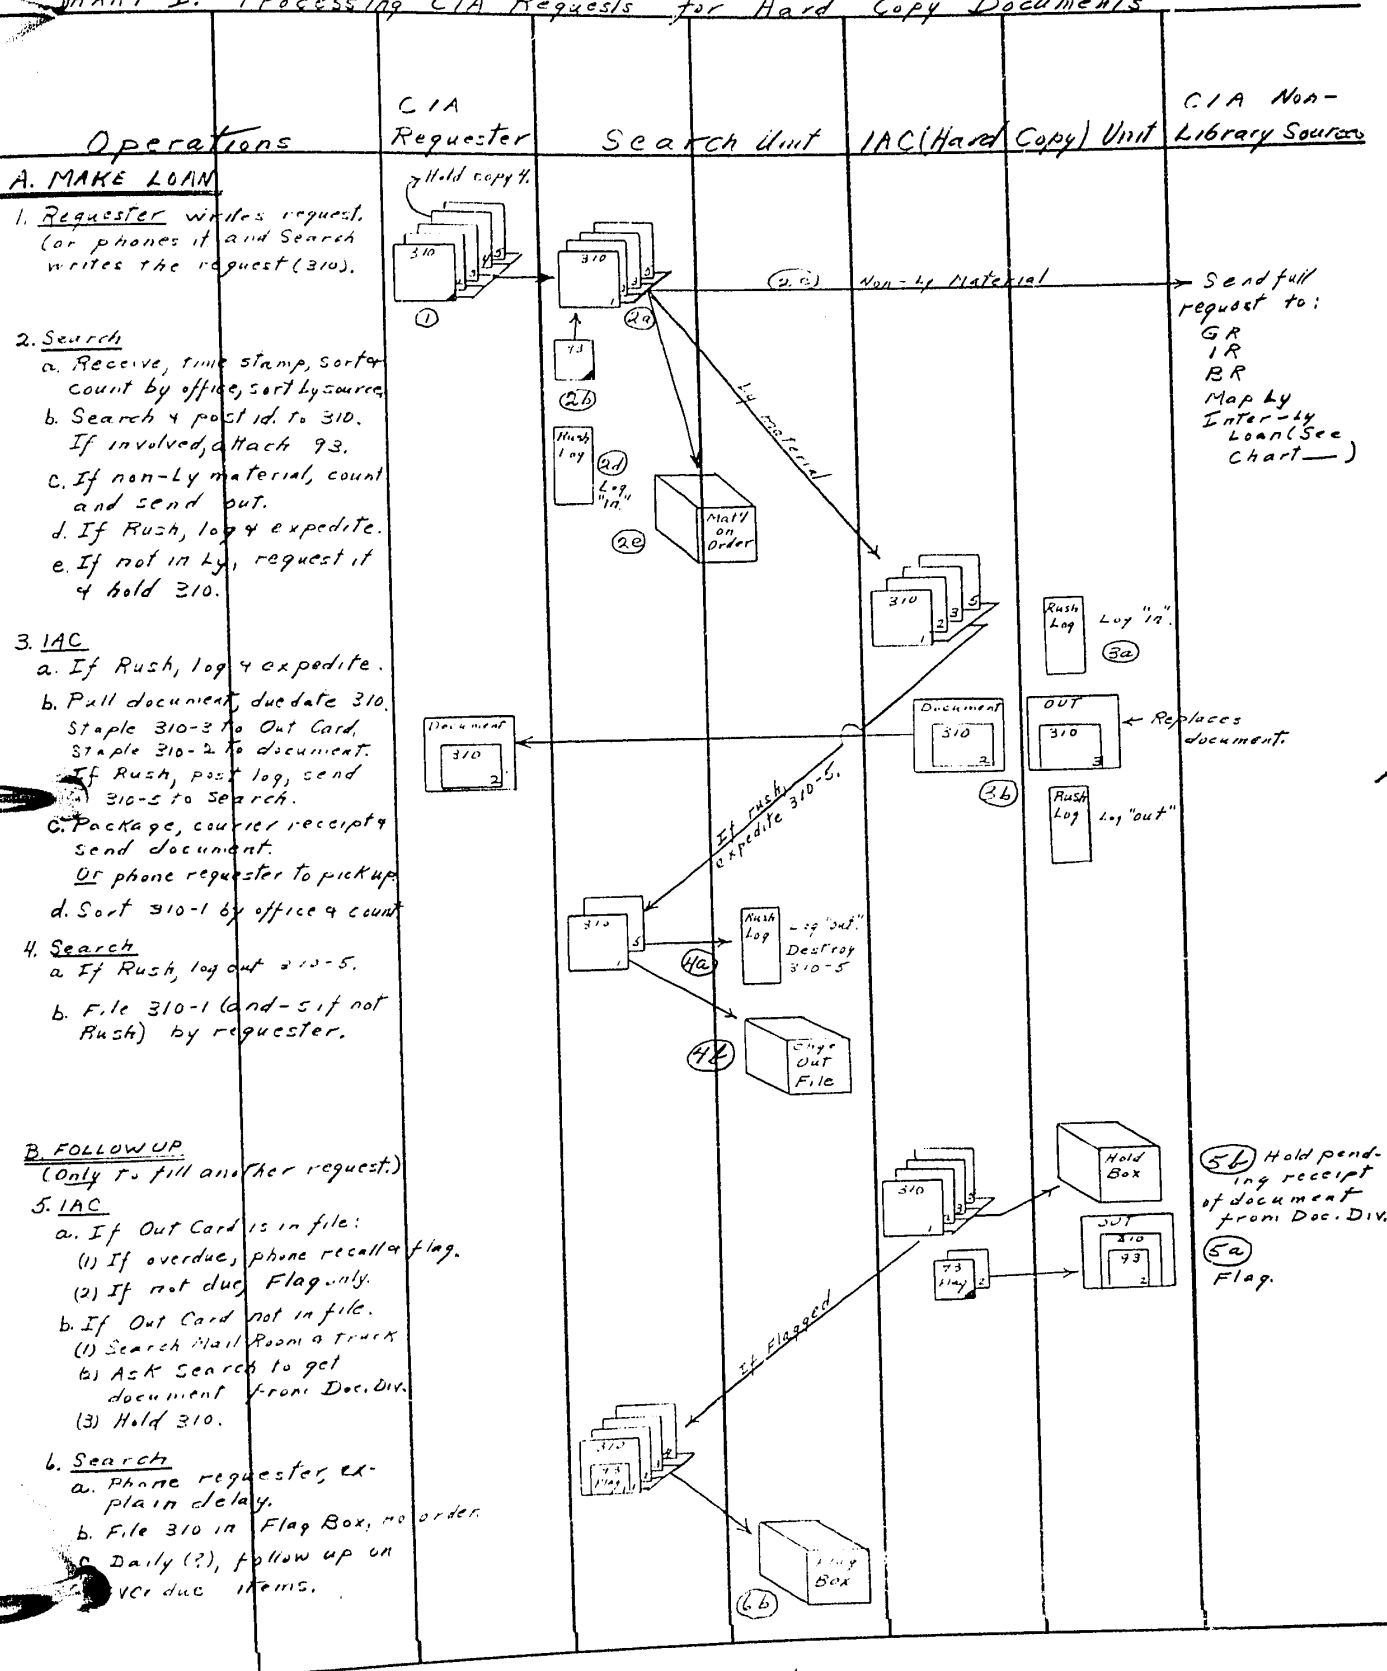 Chart I. Processing CIA Requests for Hard Copy Documents
Operations
CIA
Requester
Search Unit
IAC (Hard Copy) Unit
CIA Non-
Library Sources
A. MAKE LOAN
1. Requester writes request.
(or phones it and Search
writes the request (310).
2. Search
a. Receive, time stamp, sort &
count by office, sort by source,
b. Search & post id. to 310.
If involved, attach 93.
c. If non-Ly material, count
and send out.
d. If Rush, log & expedite.
e. If not in Ly, request it
& hold 310.
3. IAC
a. If Rush, log & expedite.
b. Pull document, due date 310.
Staple 310-3 to Out Card,
Staple 310-2 to document.
If Rush, post log, send
310-5 to Search.
c. Package, courier receipt &
send document.
Or phone requester to pick up.
d. Sort 310-1 by office & count
4. Search
a If Rush, log out 310-5.
b. File 310-1 (and -5 if not
Rush) by requester.
B. FOLLOW UP
(Only to fill another request.)
5. IAC
a. If Out Card is in file:
(1) If overdue, phone recall & flag.
(2) If not due, Flag only.
b. If Out Card not in file.
(1) Search Mail Room & truck
(2) Ask Search to get
document from Doc. Div.
(3) Hold 310.
6. Search
a. Phone requester, ex-
plain delay.
b. File 310 in Flag Box, no order.
c. Daily (?), follow up on
overdue items.
Hold copy 4.
310
2 3 4 5
1
310
1 2 3 5
2a
93
2b
Rush
Log
2d
Log
"in"
Mat'l
on
Order
2e
2c Non-Ly Material
Ly material
Send full
request to:
GR
IR
BR
Map Ly
Inter-Ly
Loan (See
Chart __)
310
1 2 3 5
Rush
Log
Log "in".
3a
Document
310
2
Document
310
2
3b
OUT
310
3
Replaces
document.
Rush
Log
Log "out"
If rush,
expedite 310-5.
310
1 5
4a
Rush
Log
Log "out".
Destroy
310-5
4b
Chge
Out
File
310
1 2 3 5
Hold
Box
5b Hold pend-
ing receipt
of document
from Doc. Div.
93
Flag 2
OUT
310
93
2
5a
Flag.
If Flagged
310
93
Flag
Flag
Box
6b